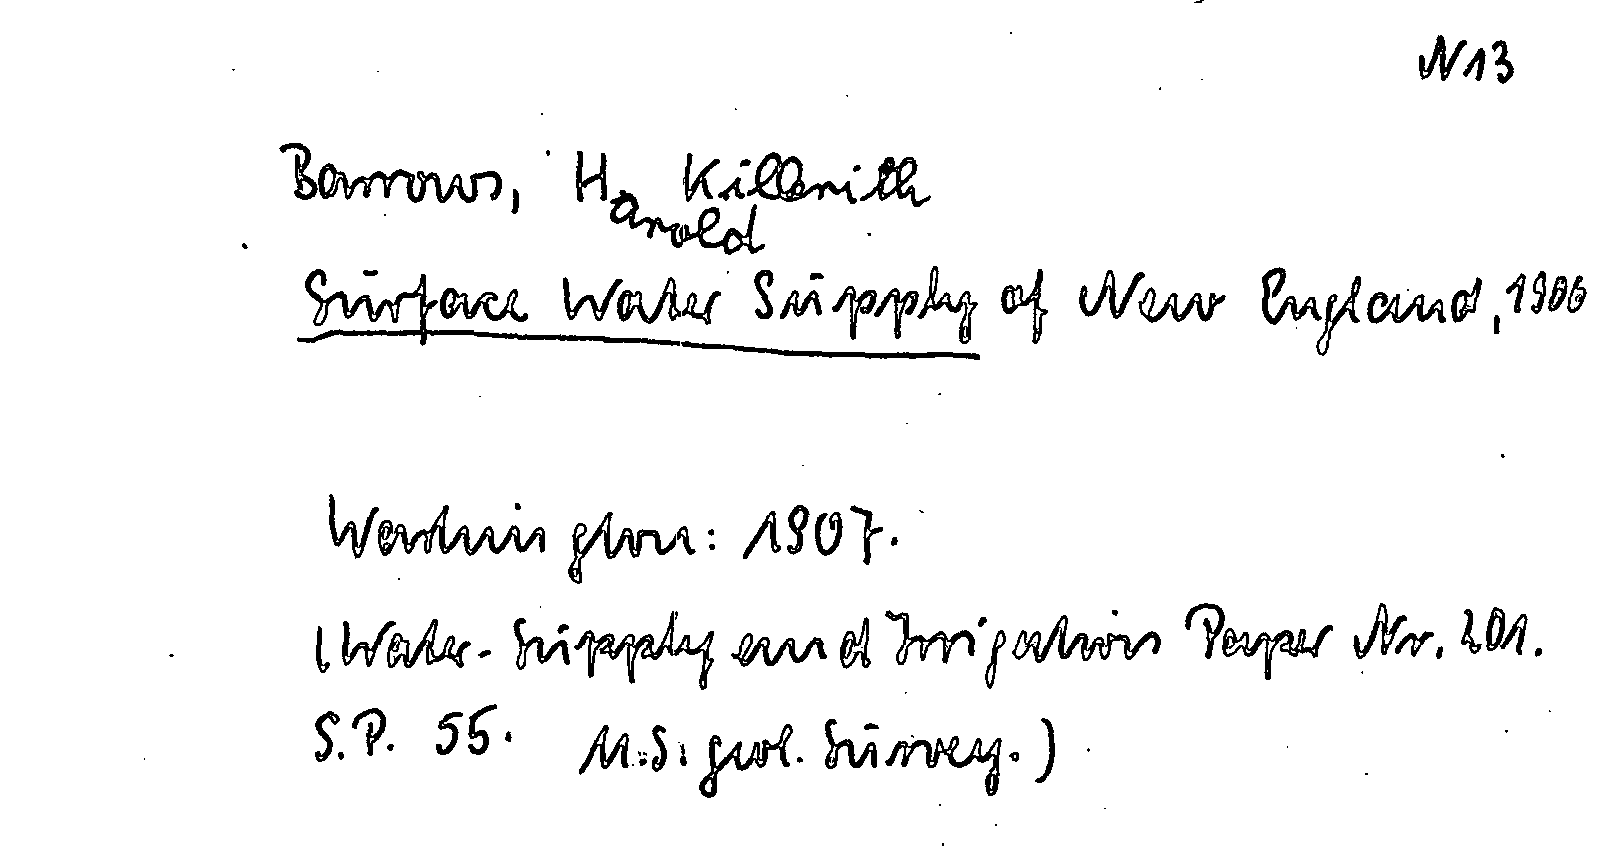 N13
Barrows, Harold Killbrith
Surface Water Supply of New England, 1906
Washington: 1907.
(Water-Supply and Irrigation Paper Nr. 201.
S.P. 55. U.S. geol. Survey.)